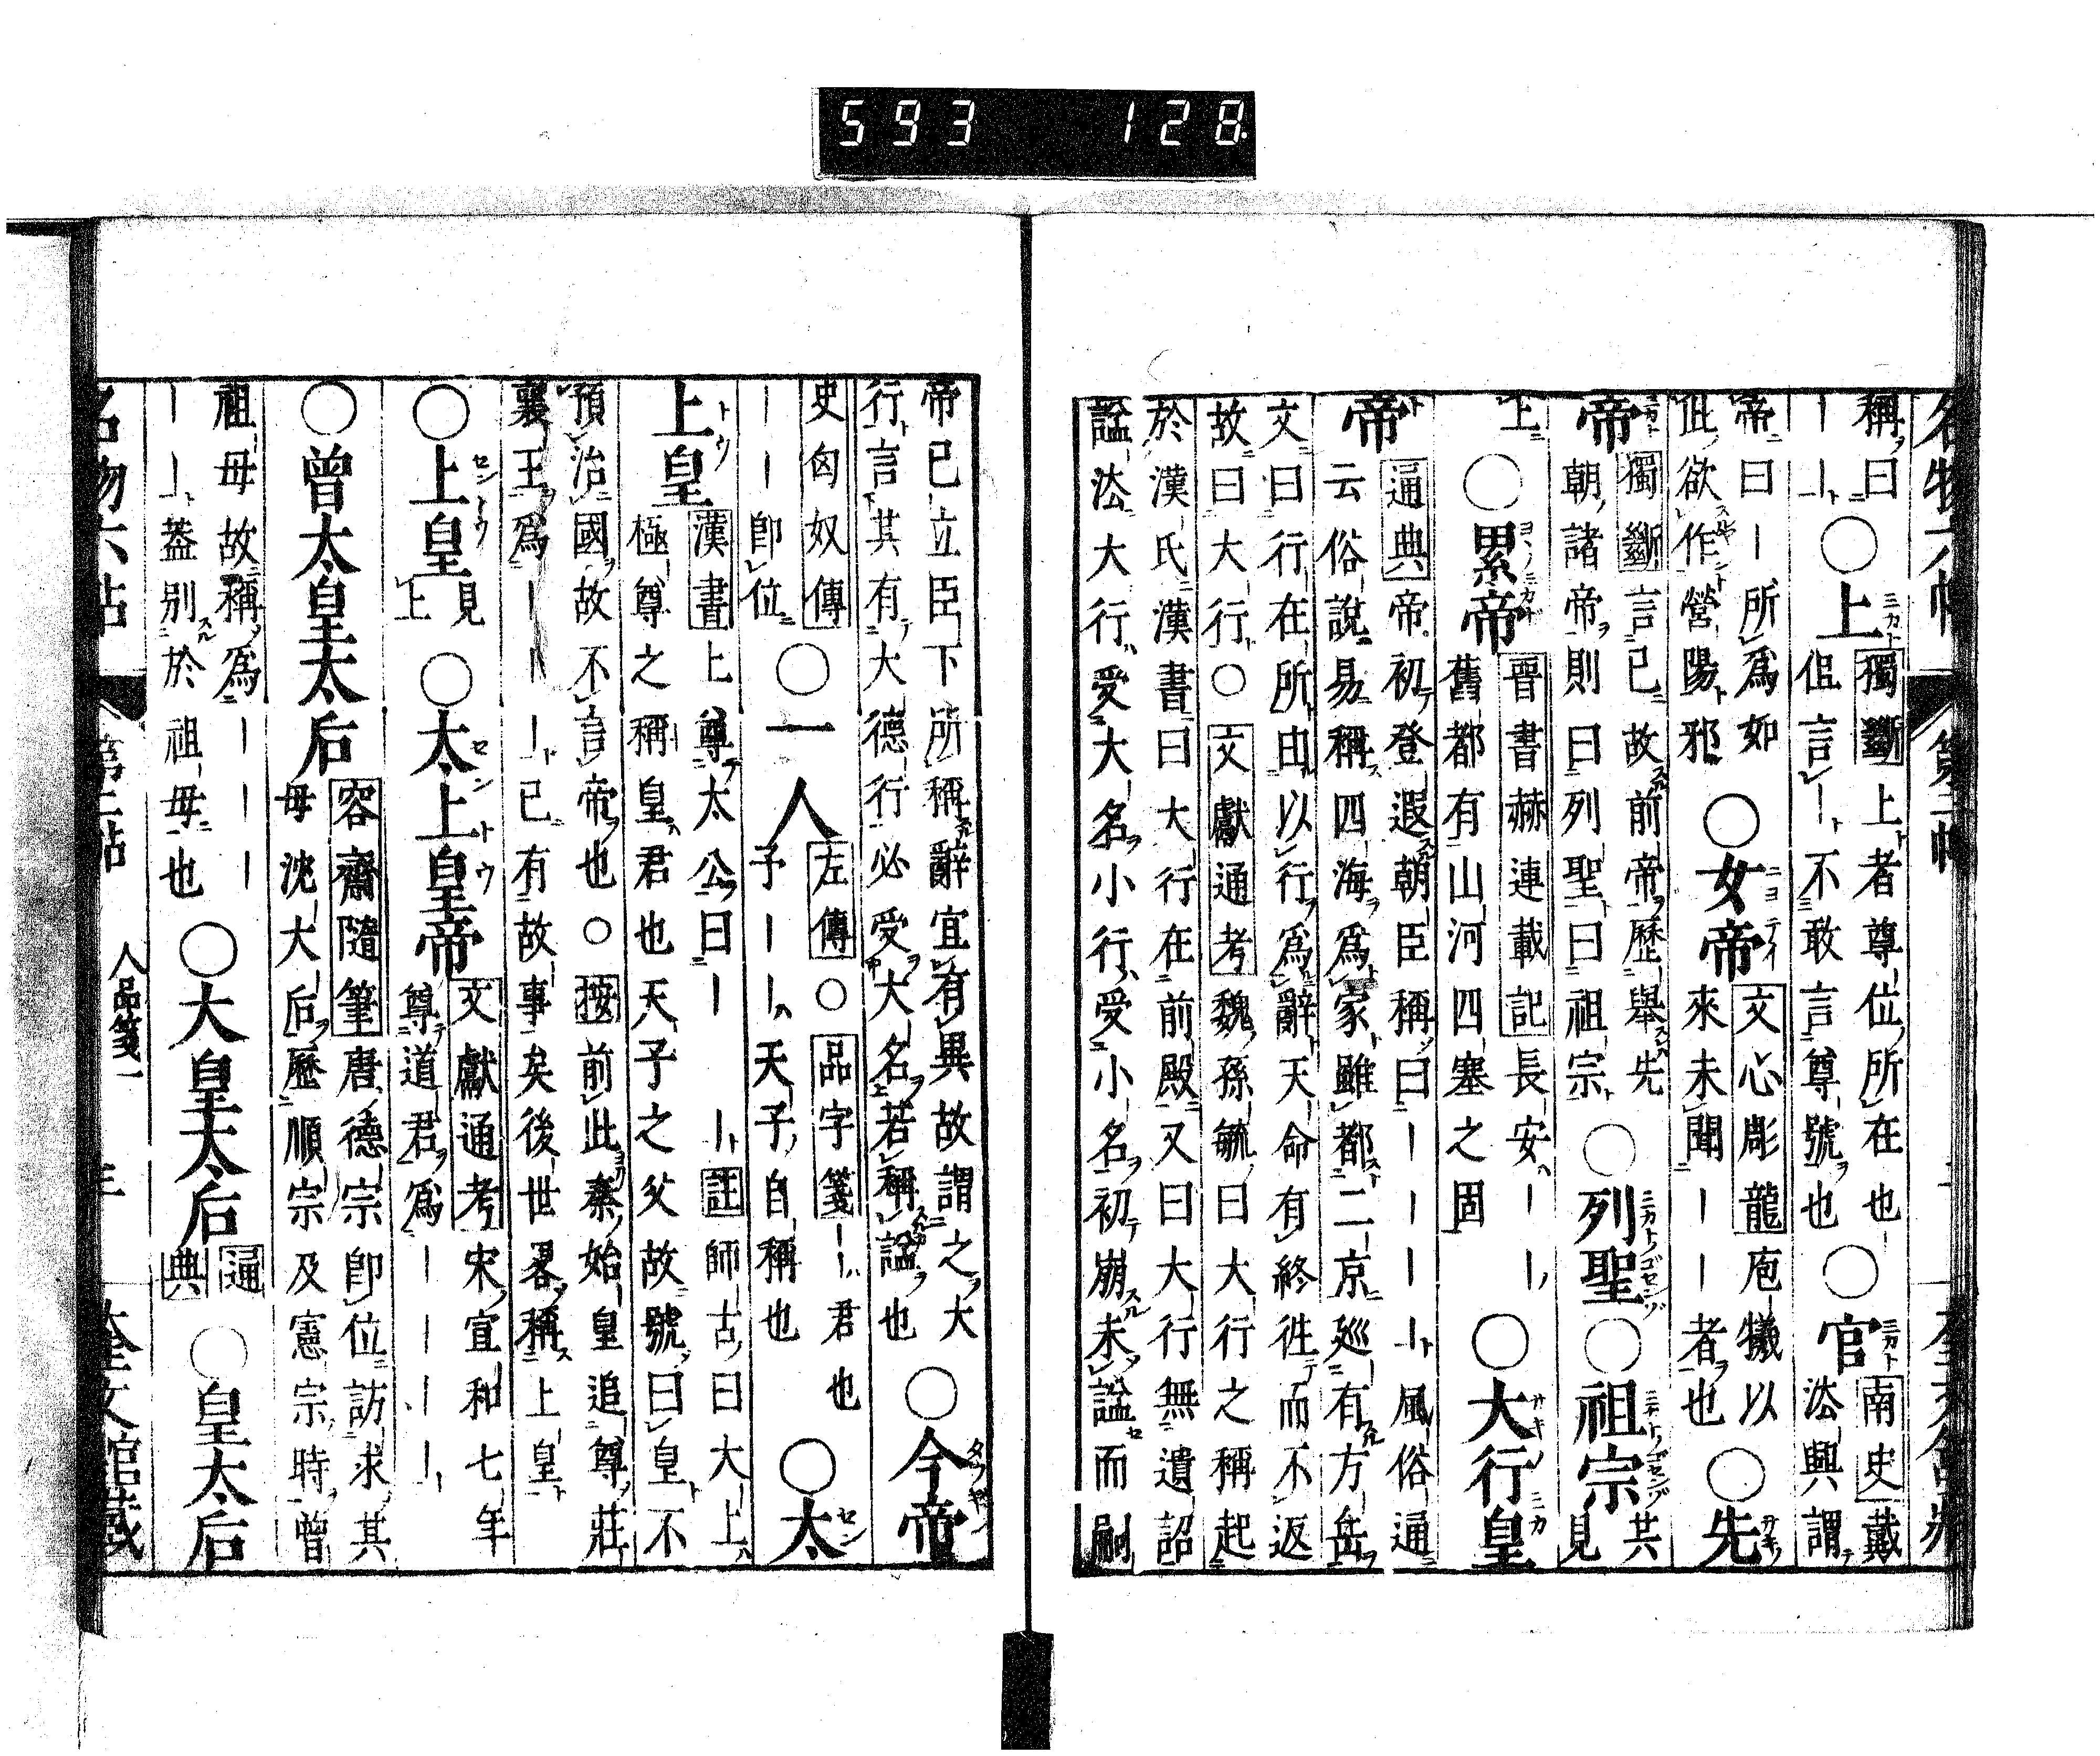 593 128
名物六帖 第二帖
稱曰｜｜○上獨斷上者尊位所在也但言｜不敢言尊號也○官南史戴法興謂
帝曰｜所爲如此欲作營陽邪○女帝文心彫龍庖犧以來未聞｜｜者也○先
帝獨斷言已故前帝歷舉先朝諸帝則曰列聖曰祖宗○列聖○祖宗共見
上○累帝晉書赫連載記長安｜｜舊都有山河四塞之固○大行皇
帝通典帝初登遐朝臣稱曰｜｜｜｜風俗通云俗說易稱四海爲家雖都二京廵有方岳
文曰行在所由以行爲辭天命有終徃而不返故曰大行○文獻通考魏孫毓曰大行之稱起
於漢氏漢書曰大行在前殿又曰大行無遺詔諡法大行受大名小行受小名初崩未諡而嗣
帝已立臣下所稱辭宜有異故謂之大行言其有大德行必受大名若稱諡也○今帝
史匈奴傳｜｜卽位○一人左傳○品字箋｜｜君也子｜｜天子自稱也○太
上皇漢書上尊太公曰｜｜註師古曰大上極尊之稱皇君也天子之父故號曰皇不
預治國故不言帝也○按前此秦始皇追尊莊襄王爲｜｜｜已有故事矣後世畧稱上皇
○上皇見上○太上皇帝文獻通考宋宣和七年尊道君爲｜｜｜｜
○曾太皇太后容齋隨筆唐德宗卽位訪求其母沈大后歷順宗及憲宗時曾
祖母故稱爲｜｜｜｜｜蓋別於祖母也○大皇太后通典○皇太后
名物六帖 第二帖 人品箋一 奎文館藏